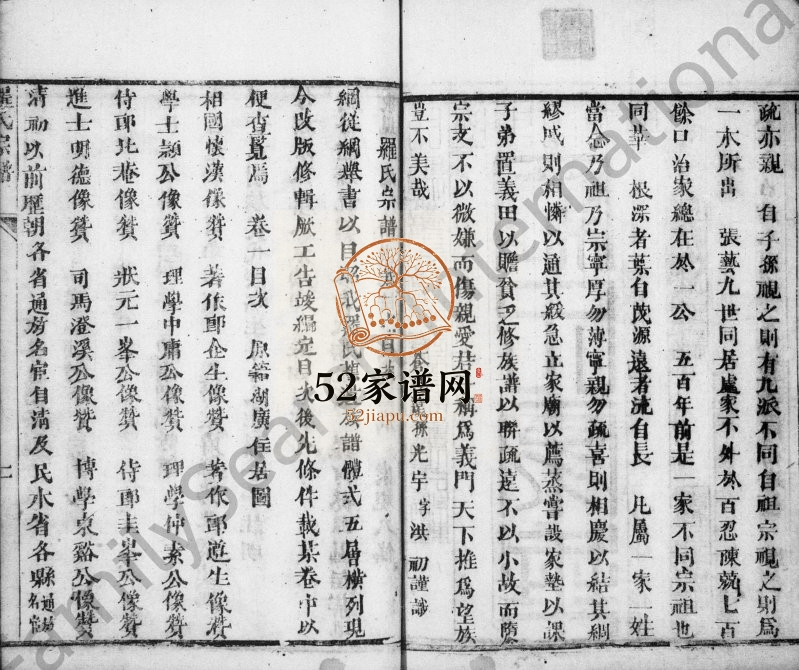 疏亦親 自子孫視之則有九派不同自祖宗視之則爲
一水所出 張藝九世同居處家不外於百忍陳兢七百
餘口治家總在於一公 五百年前是一家不同宗祖也
同華 根深者葉自茂源遠者流自長 凡屬一家一姓
當念乃祖乃宗寧厚勿薄寧親勿疏喜則相慶以結其綢
繆戚則相憐以通其緩急立家廟以薦蒸嘗設家塾以課
子弟置義田以贍貧乏修族譜以聯疏遠不以小故而隳
宗支不以微嫌而傷親愛 稱爲義門天下推爲望族
豈不美哉
孫光宇字洪初謹識
羅氏宗譜
綱從綱舉書以目 氏 族譜體式五層橫列現
今改版修輯厥工告竣編定目次後先條件載某卷中以
便查覽焉 卷一目次 原籍湖廣住居圖
相國懷漢像贊 著作郎企生像贊 著作郎遵生像贊
學士穎公像贊 理學中庸公像贊 理學仲素公像贊
侍郎此菴像贊 狀元一峯公像贊 侍郎圭峯公像贊
進士明德像贊 司馬澄溪公像贊 博學東谿公像贊
清初以前歷朝各省通房名宦自清及民本省各縣通房名宦
羅氏宗譜
52家谱网
52jiapu.com
FamilySearch International